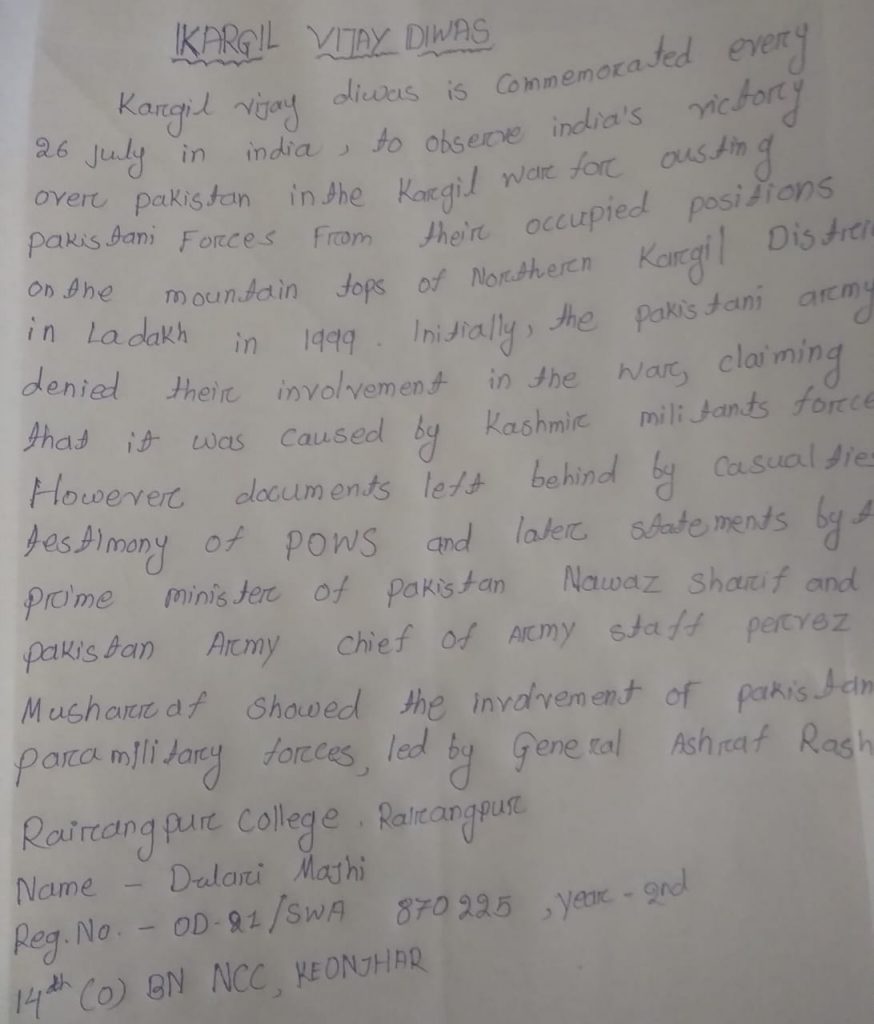 KARGIL VIJAY DIWAS
Kargil vijay diwas is commemorated every
26 July in india, to observe india's victory
over pakistan in the Kargil war for ousting
pakistani Forces From their occupied positions
on the mountain tops of Northern Kargil Distri
in Ladakh in 1999. Initially, the pakistani army
denied their involvement in the war, claiming
that it was caused by Kashmir militants force
However documents left behind by casualtie
testimony of POWS and later statements by t
prime minister of pakistan Nawaz Sharif and
pakistan Army chief of Army staff pervez
Musharraf showed the involvement of pakistan
paramilitary forces, led by General Ashraf Rash
Rairangpur College. Rairangpur
Name - Dulari Majhi
Reg. No. - OD-21/SWA 870225, year - 2nd
14th (O) BN NCC, KEONJHAR